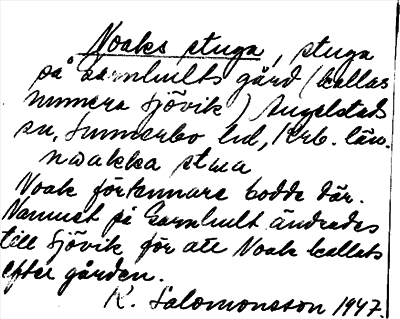 Noaks stuga, stuga
på Garnhults gård (kallas
numera Sjövik) Angelstads
sn, Sunnerbo hd, Krb. län.
nwakka stua
Noak förkunnare bodde där.
Namnet på Garnhult ändrades
till Sjövik för att Noak kallats
efter gården.
K. Salomonsson 1947.